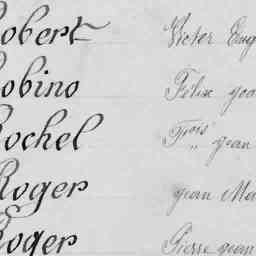 Robert Victor Eug
Robino Félix Jea
Rochel Frois Jean
" Jean
Roger Jean Ma
Roger Pierre Jean